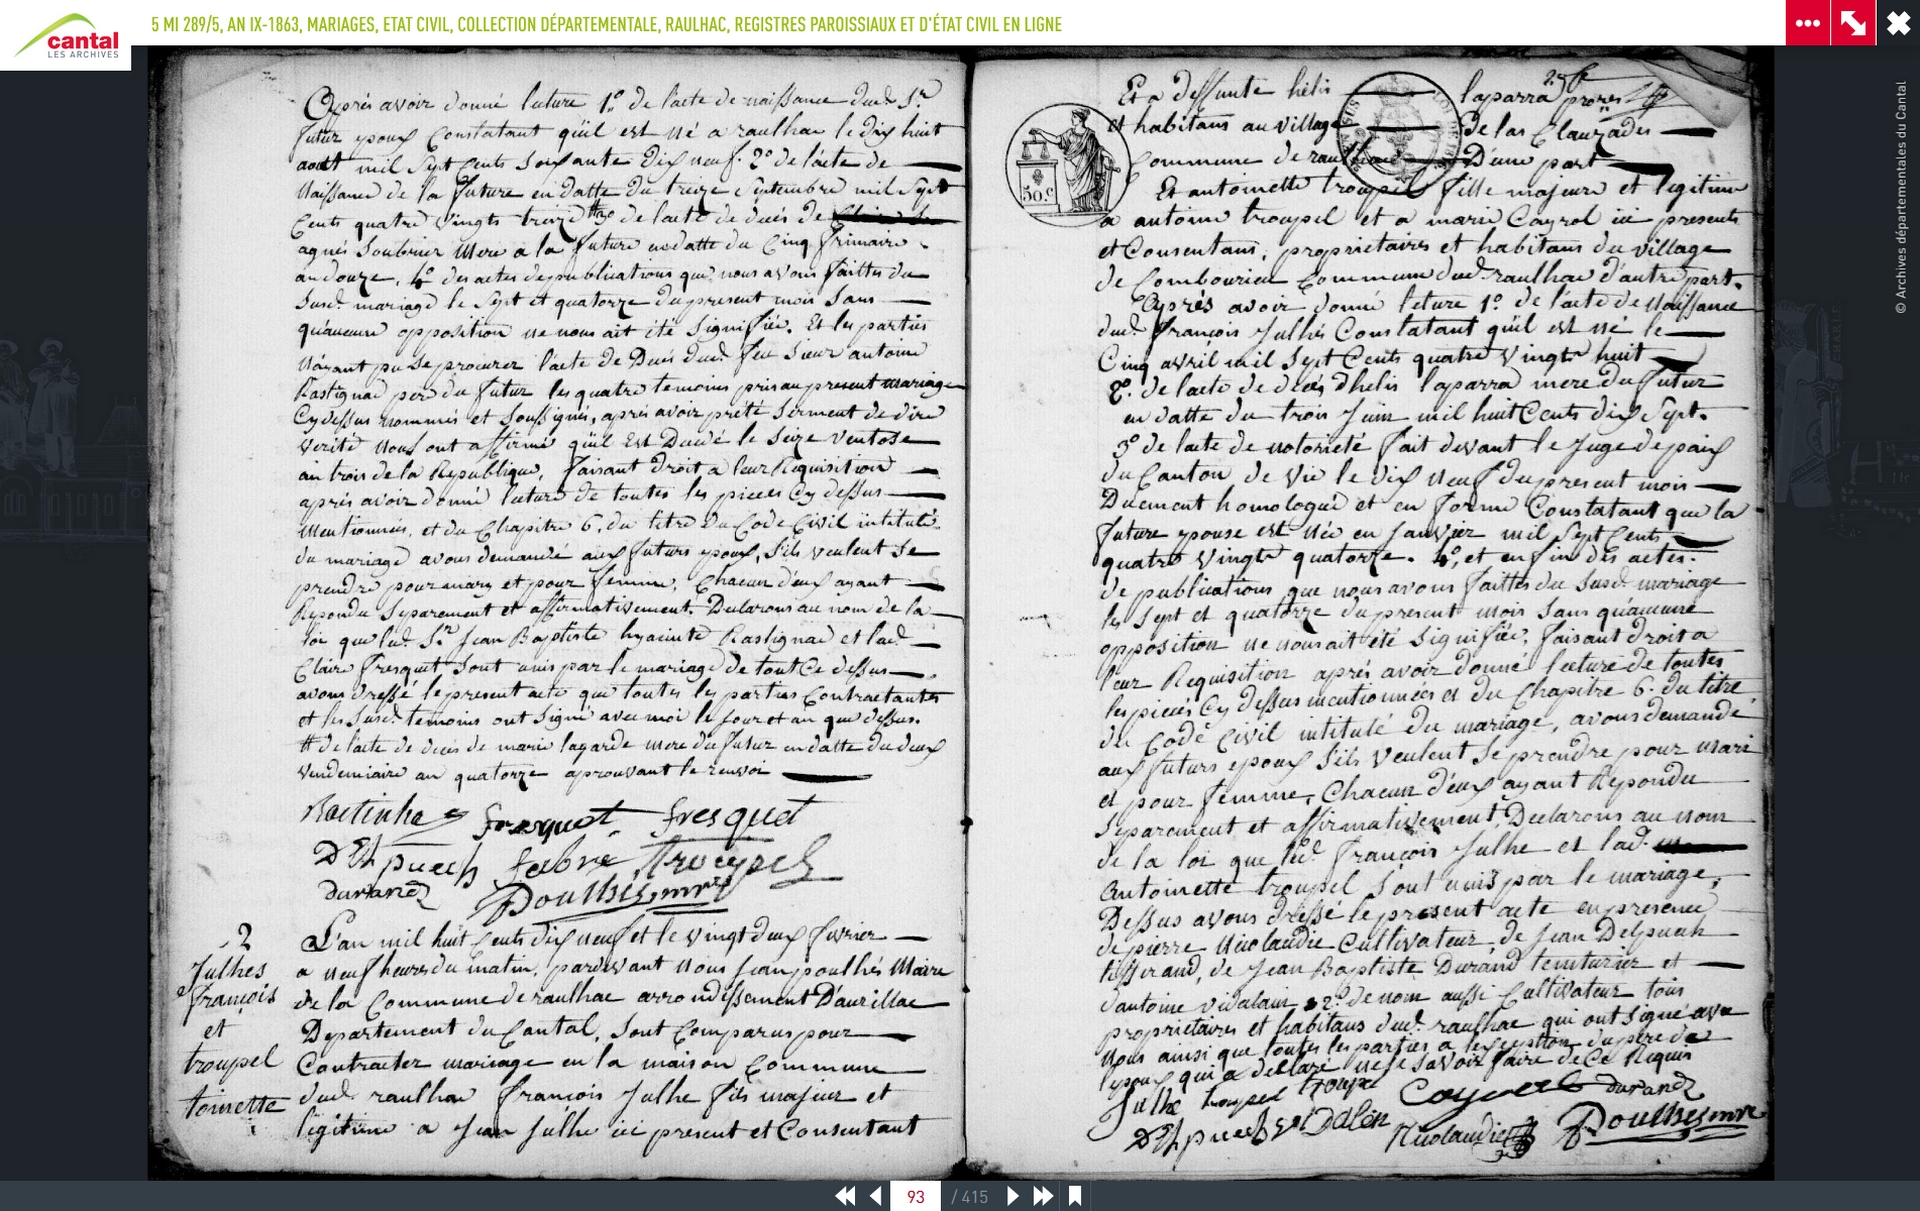 cantal
LES ARCHIVES
5 MI 289/5, AN IX-1863, MARIAGES, ETAT CIVIL, COLLECTION DÉPARTEMENTALE, RAULHAC, REGISTRES PAROISSIAUX ET D'ÉTAT CIVIL EN LIGNE
© Archives départementales du Cantal
Après avoir donné lecture 1º de l'acte de naissance dud. Sr.
futur epoux Constatant qu'il est né a raulhac le dix huit
aout mil sept Cents soixante dix neuf. 2º de l'acte de
Naissance de la future en datte du treize Septembre mil sept
Cents quatre vingts treize # 3º de l'acte de decès de
agnès Soubrier Mere a la future en datte du Cinq frimaire
an douze, 4º des actes de publications que nous avons faittes du
susd. mariage le sept et quatorze du present mois sans
qu'aucune opposition ne nous ait été signifiée. Et les parties
N'ayant pu se procurer l'acte de Decès dud. feu sieur antoine
Rastignac pere du futur les quatre temoins pris au present mariage
Cy dessus nommés et soussignés, après avoir prété serment de dire
verité Nous ont affirmé qu'il Est Decedé le seize ventose
an trois de la Republique, faisant droit a leur Requisition
après avoir donné lecture de toutes les pieces Cy dessus
Mentionnées, et du Chapitre 6. du titre du Code Civil intitulé
du mariage avons demandé aux futurs epoux, s'ils veulent se
prendre pour mary et pour femme, Chacun d'eux ayant
Repondu separement et affirmativement. Declarons au nom de la
loi que led. Sr. Jean Baptiste hyacinte Rastignac et lad.
Claire fresquet sont unis par le mariage de tout Ce dessus
avons dressé le present acte que toutes les parties Contractantes
et les susd. temoins ont signé avec moi le jour et an que dessus.
# de l'acte de decès de marie lagarde mere du futur en datte du deux
vendemiaire an quatorze aprouvant le renvoi
fresquet fresquet
Delpuech fabre troupel
durand Poulhès, mre
2
Julhes
françois
et
troupel
toinette
L'an mil huit Cents dix neuf et le vingt deux fevrier
a neuf heures du matin, pardevant Nous Jean poulhès Maire
de la Commune de raulhac arrondissement D'aurillac
Departement du Cantal, sont Comparus pour
Contracter mariage en la maison Commune
dud. raulhac françois Julhe fils majeur et
légitime a Jean Julhe ici present et Consentant
Et a deffunte hélis laparra propres
et habitans au village de las Clauzades
Commune de raulhac D'une part
Et antoinette troupel fille majeure et legitime
a antoine troupel et a marie Cayrol ici presents
et Consentans, propriétaires et habitans du village
de Combourieu Commune dud. raulhac d'autre part.
Après avoir donné leture 1º. de l'acte de Naissance
dud. françois Julhes Constatant qu'il est né le
Cinq avril mil sept Cents quatre vingts huit
2º. de l'acte de decès d'hélis laparra mere du futur
en datte du trois Juin mil huit Cents dix sept.
3º de l'acte de notorieté fait devant le Juge de paix
du Canton de Vic le dix neuf du present mois
Duement homologué et en forme Constatant que la
future epouse est Née en Janvier mil sept Cents
quatre vingts quatorze. 4º, et enfin des actes
de publications que nous avons faittes du susd. mariage
les sept et quatorze du present mois sans qu'aucune
opposition ne nous ait été signifiée. faisant droit a
leur Requisition après avoir donné lecture de toutes
les pieces Cy dessus mentionnées et du Chapitre 6. du titre
du Code Civil intitulé du mariage, avons demandé
aux futurs epoux s'ils veulent se prendre pour mari
et pour femme, Chacun d'eux ayant Repondu
separement et affirmativement, Declarons au nom
de la loi que led. françois Julhe et lad.
Antoinette troupel sont unis par le mariage,
Dessus avons dressé le present acte en presence
de pierre Nicolaudie Cultivateur, de Jean Delpuech
tisserand, de Jean Baptiste Durand teinturier et
d'antoine vidalain 2º. de nom aussi Cultivateur tous
propriétaires et habitans dud. raulhac qui ont signé avec
Nous ainsi que toutes les parties a l'exeption du pere de
l'epoux qui a declaré ne le savoir faire de Ce Requis
Julhe troupel troupel durand
Delpuech Nicolaudie Poulhès, mre
50 c
93 / 415